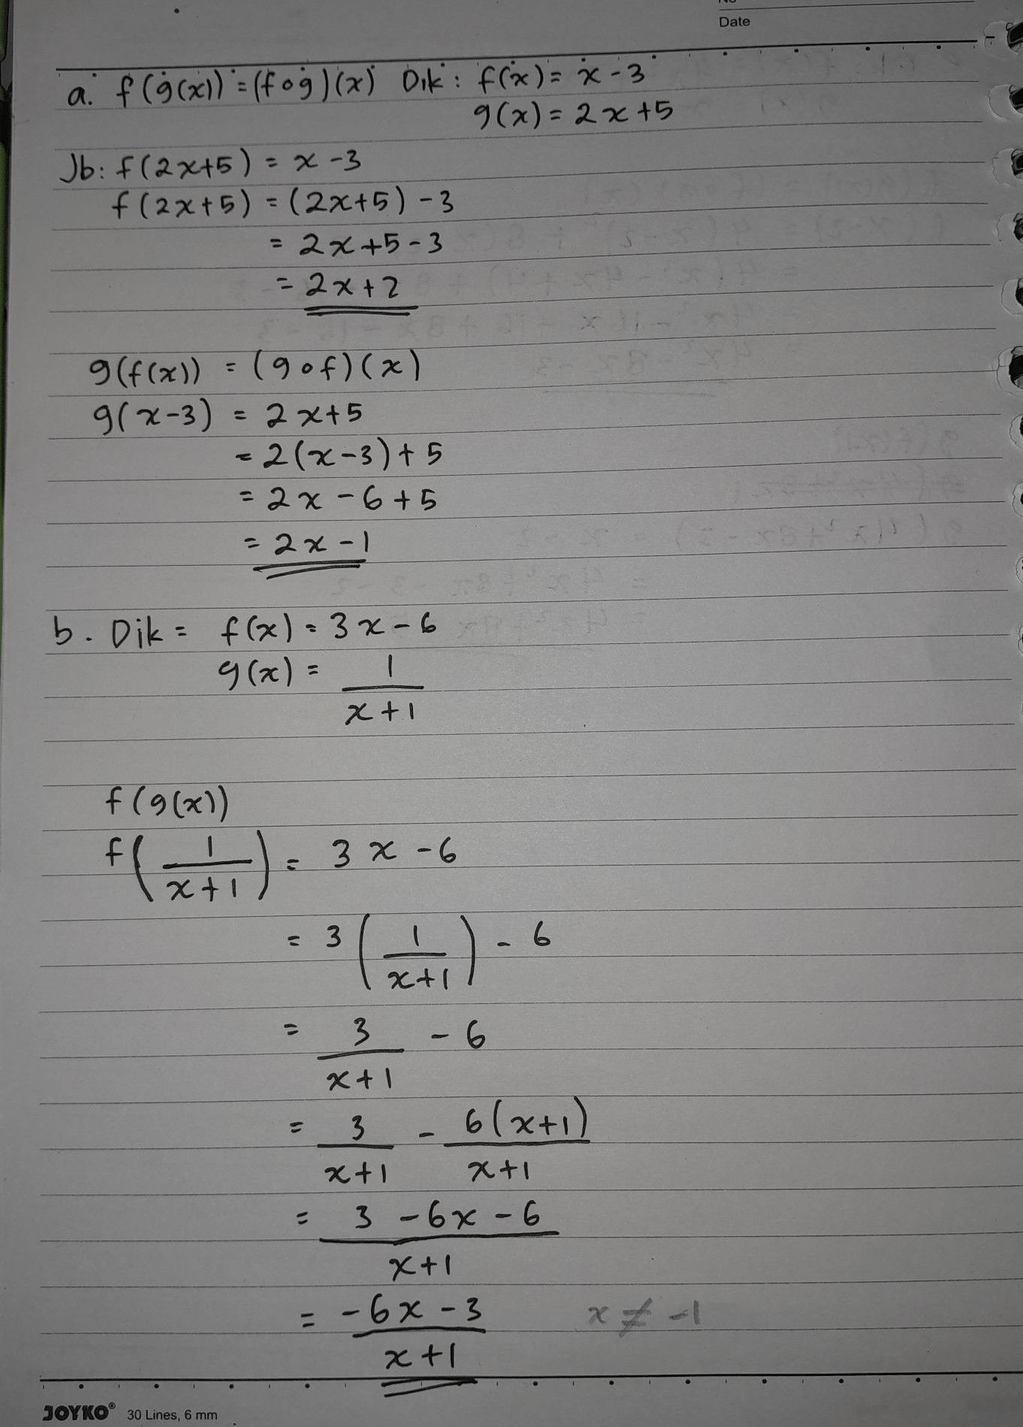 No
Date
a. f(g(x)) = (fog)(x) Dik : f(x) = x - 3
g(x) = 2x + 5
Jb: f(2x+5) = x - 3
f(2x+5) = (2x+5) - 3
= 2x + 5 - 3
= 2x + 2
g(f(x)) = (gof)(x)
g(x-3) = 2x+5
= 2(x-3) + 5
= 2x - 6 + 5
= 2x - 1
b. Dik = f(x) = 3x - 6
g(x) = 1
x + 1
f(g(x))
f( 1 ) = 3x - 6
x + 1
= 3 ( 1 ) - 6
x+1
= 3 - 6
x + 1
= 3 - 6(x+1)
x+1 x+1
= 3 - 6x - 6
x+1
= -6x - 3 x ≠ -1
x + 1
JOYKO® 30 Lines, 6 mm